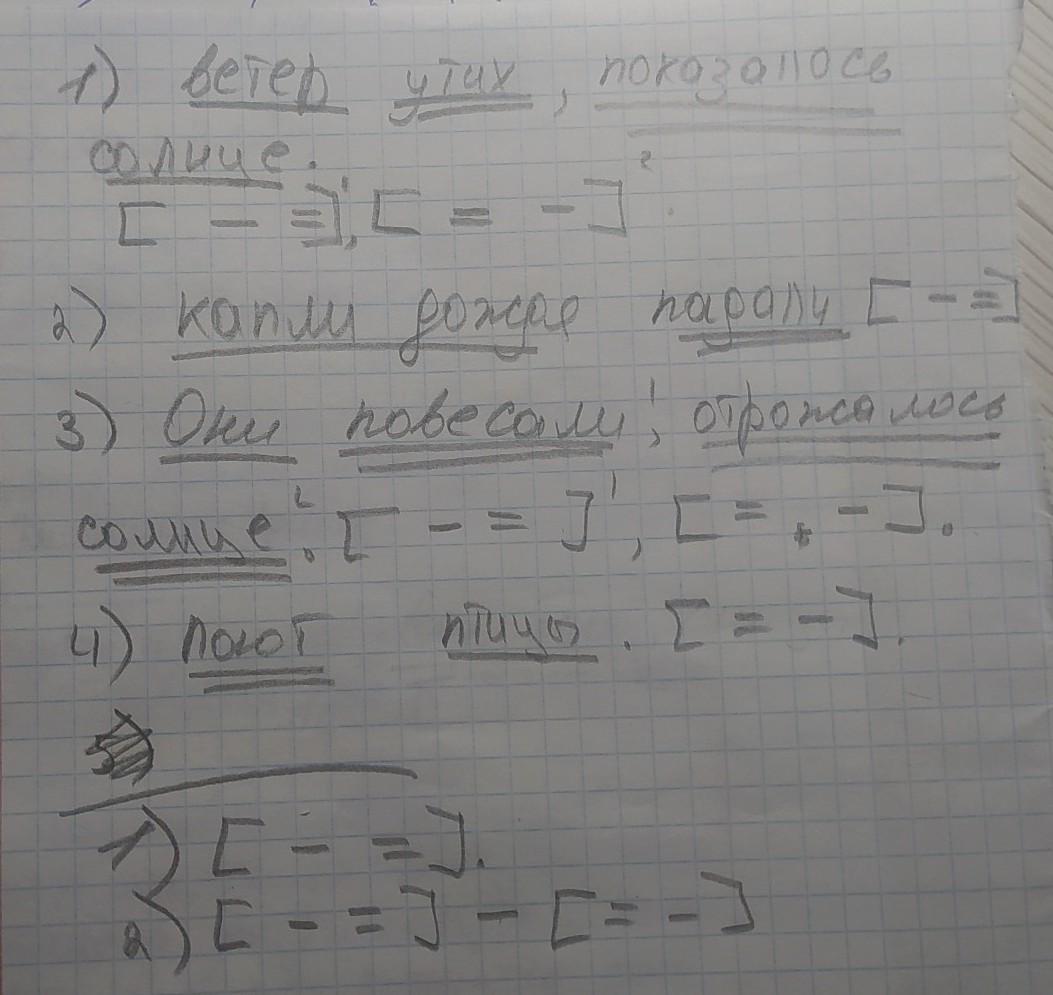 1) ветер утих, показалось
солнце.
[ – =]¹, [ = – ]²
2) капли дождя падали [ – =]
3) Они повесали¹, отрожалось
солнце². [ – = ]¹, [ = , – ].
4) поют птицы. [ = – ].
1) [ – = ].
2) [ – = ] – [ = – ]